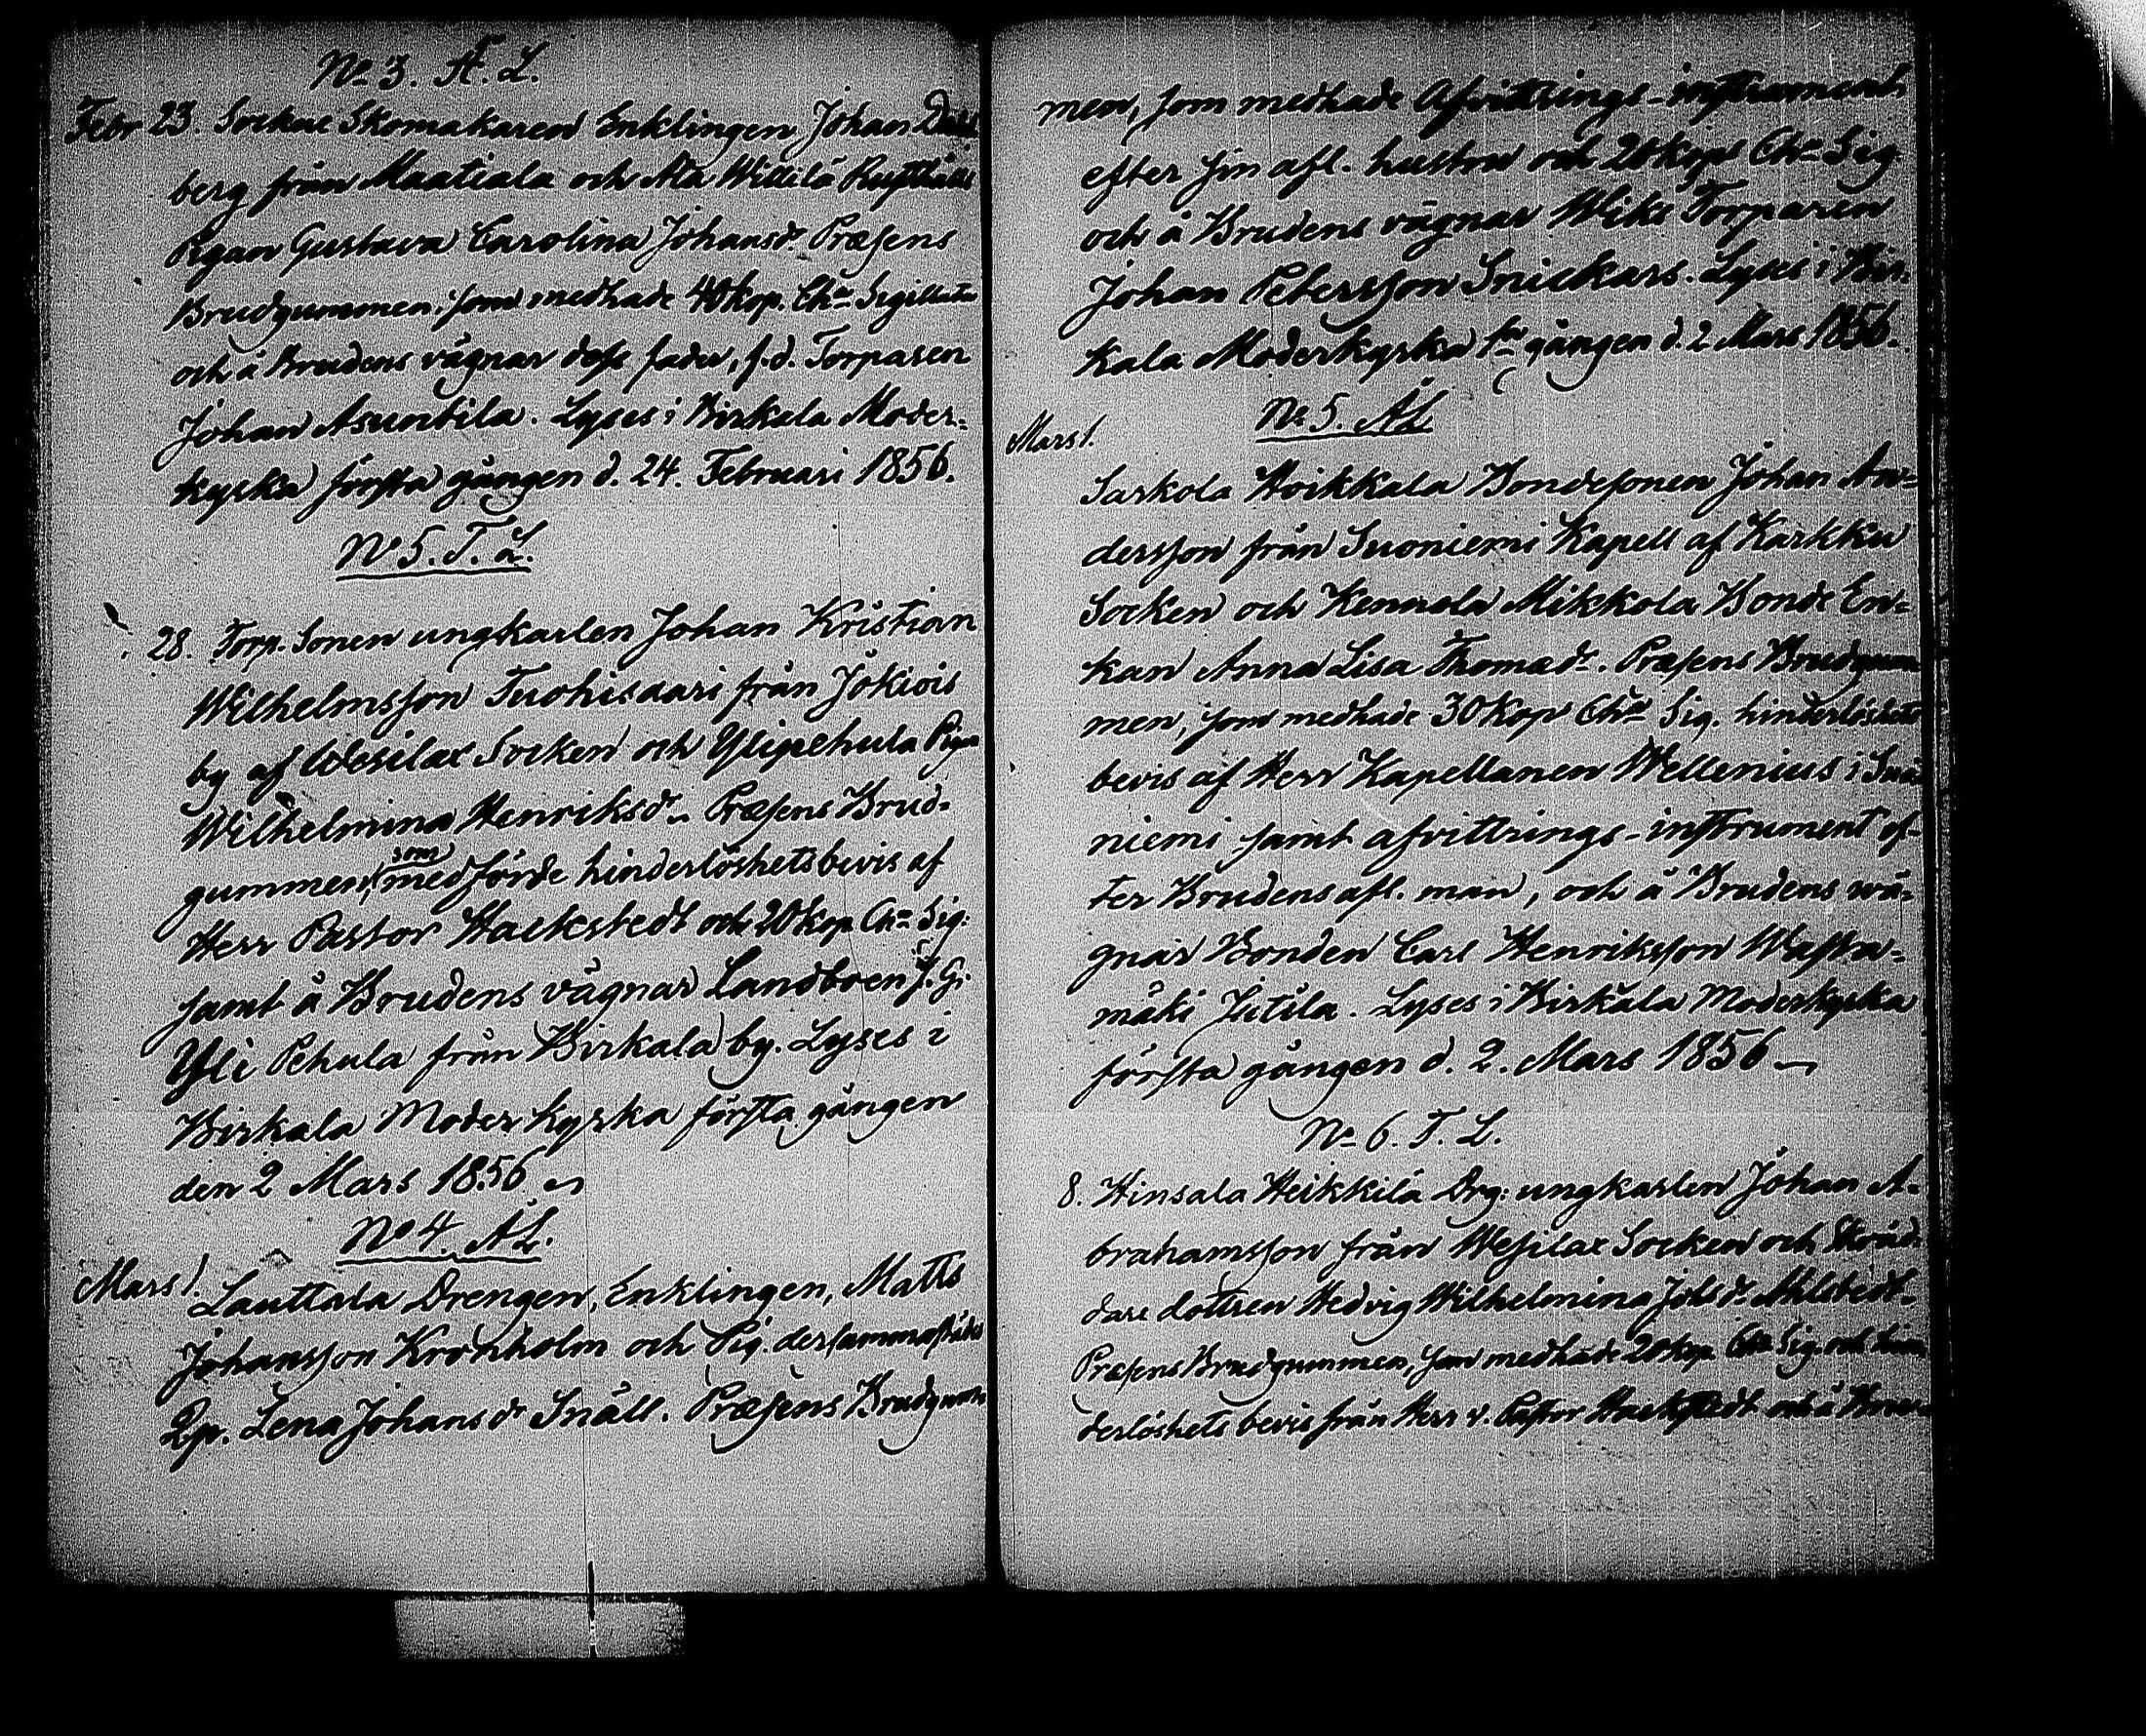 No 3. Å. L.
Febr 23. Sockne Skomakaren Enklingen Johan
berg från Maatiala och Ala Willilä Rusthålls
Pigan Gustava Carolina Johansdr. Præsens
Brudgummen, som medhade 40 kop. Cha Sigillata
och å Brudens vägnar dess fader, f.d. Torparen
Johan Asuntila. Lyses i Birkala Moder-
kyrka första gången d. 24. Februari 1856.
No 5. T. L.
28. Torp. Sonen ungkarlen Johan Kristian
Wilhelmsson Tuohisaari från Jokiois
by af Wesilax Socken och Ylipehula Piga
Wilhelmina Henriksdr. Præsens Brud-
gummen, som medförde hinderlöshetsbevis af
Herr Pastor Hackstedt och 20 kop Cha Sig:
samt å Brudens vägnar Landboen J. G.
Yli Pehula från Birkala by. Lyses i
Birkala Moder kyrka första gången
den 2 Mars 1856
No 4. ÅL.
Mars 1. Lauttala Drengen, Enklingen, Matts
Johansson Kronholm och Pig. dersammastädes
Qp. Lena Johansdr Snäll. Præsens Brudgum
men, som medhade Afvittrings-instrument
efter sin afl. hustru och 20 kop Cha Sig
och å Brudens vägnar Wiks Torparen
Johan Petersson Snickars. Lyses i Bir-
kala Moderkyrka 1ra gången d. 2 Mars 1856.
No 5. ÅL.
Mars 1.
Sarkola Hoikkala Bondesonen Johan An-
dersson från Suoniemi Kapell af Karkku
Socken och Kennola Mikkola Bonde En-
kan Anna Lisa Thomædr. Præsens Brudgum
men, som medhade 30 kop Cha Sig. hinderlöshets
bevis af Herr Kapellanen Wellenius i Suo
niemi samt afvittrings-instrument ef-
ter Brudens afl. man, och å Brudens wä-
gnar Bonden Carl Henriksson Wasta-
mäki Jutila. Lyses i Birkala Moderkyrka
första gången d. 2. Mars 1856
No 6. T. L.
8. Hinsala Heikkilä Drg: ungkarlen Johan A-
brahamsson från Wesilax Socken och Skräd-
dare dottren Hedvig Wilhelmina Johsdr Ahlstedt.
Præsens Brudgummen, som medhade 20 kop Cha Sig. och hin
derlöshets bevis från Herr v. Pastor Hackstedt och å Bru-